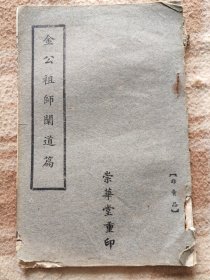 金公祖師闡道篇
崇華堂重印
【非賣品】